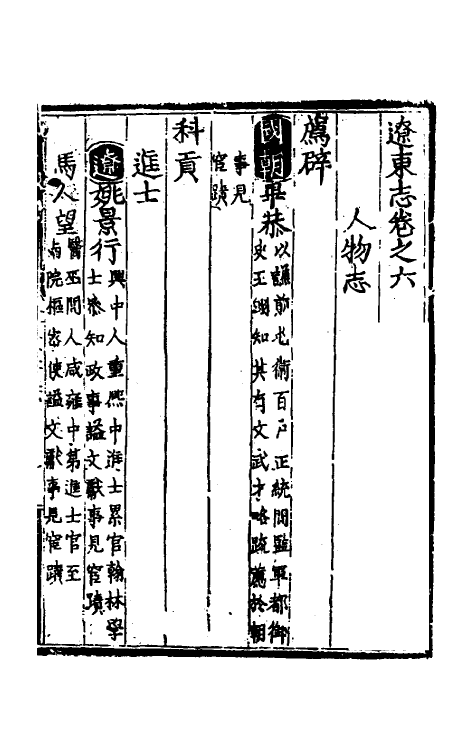 遼東志卷之六
人物志
薦辟
國朝畢恭以謫前屯衛百户正統間監軍都御
史王翺知其有文武才略疏薦於朝
事見
宦蹟
科貢
進士
遼姚景行興中人重熙中進士累官翰林學
士參知政事謚文獻事見宦蹟
馬人望醫巫閭人咸雍中第進士官至
南院樞密使謚文獻事見宦蹟